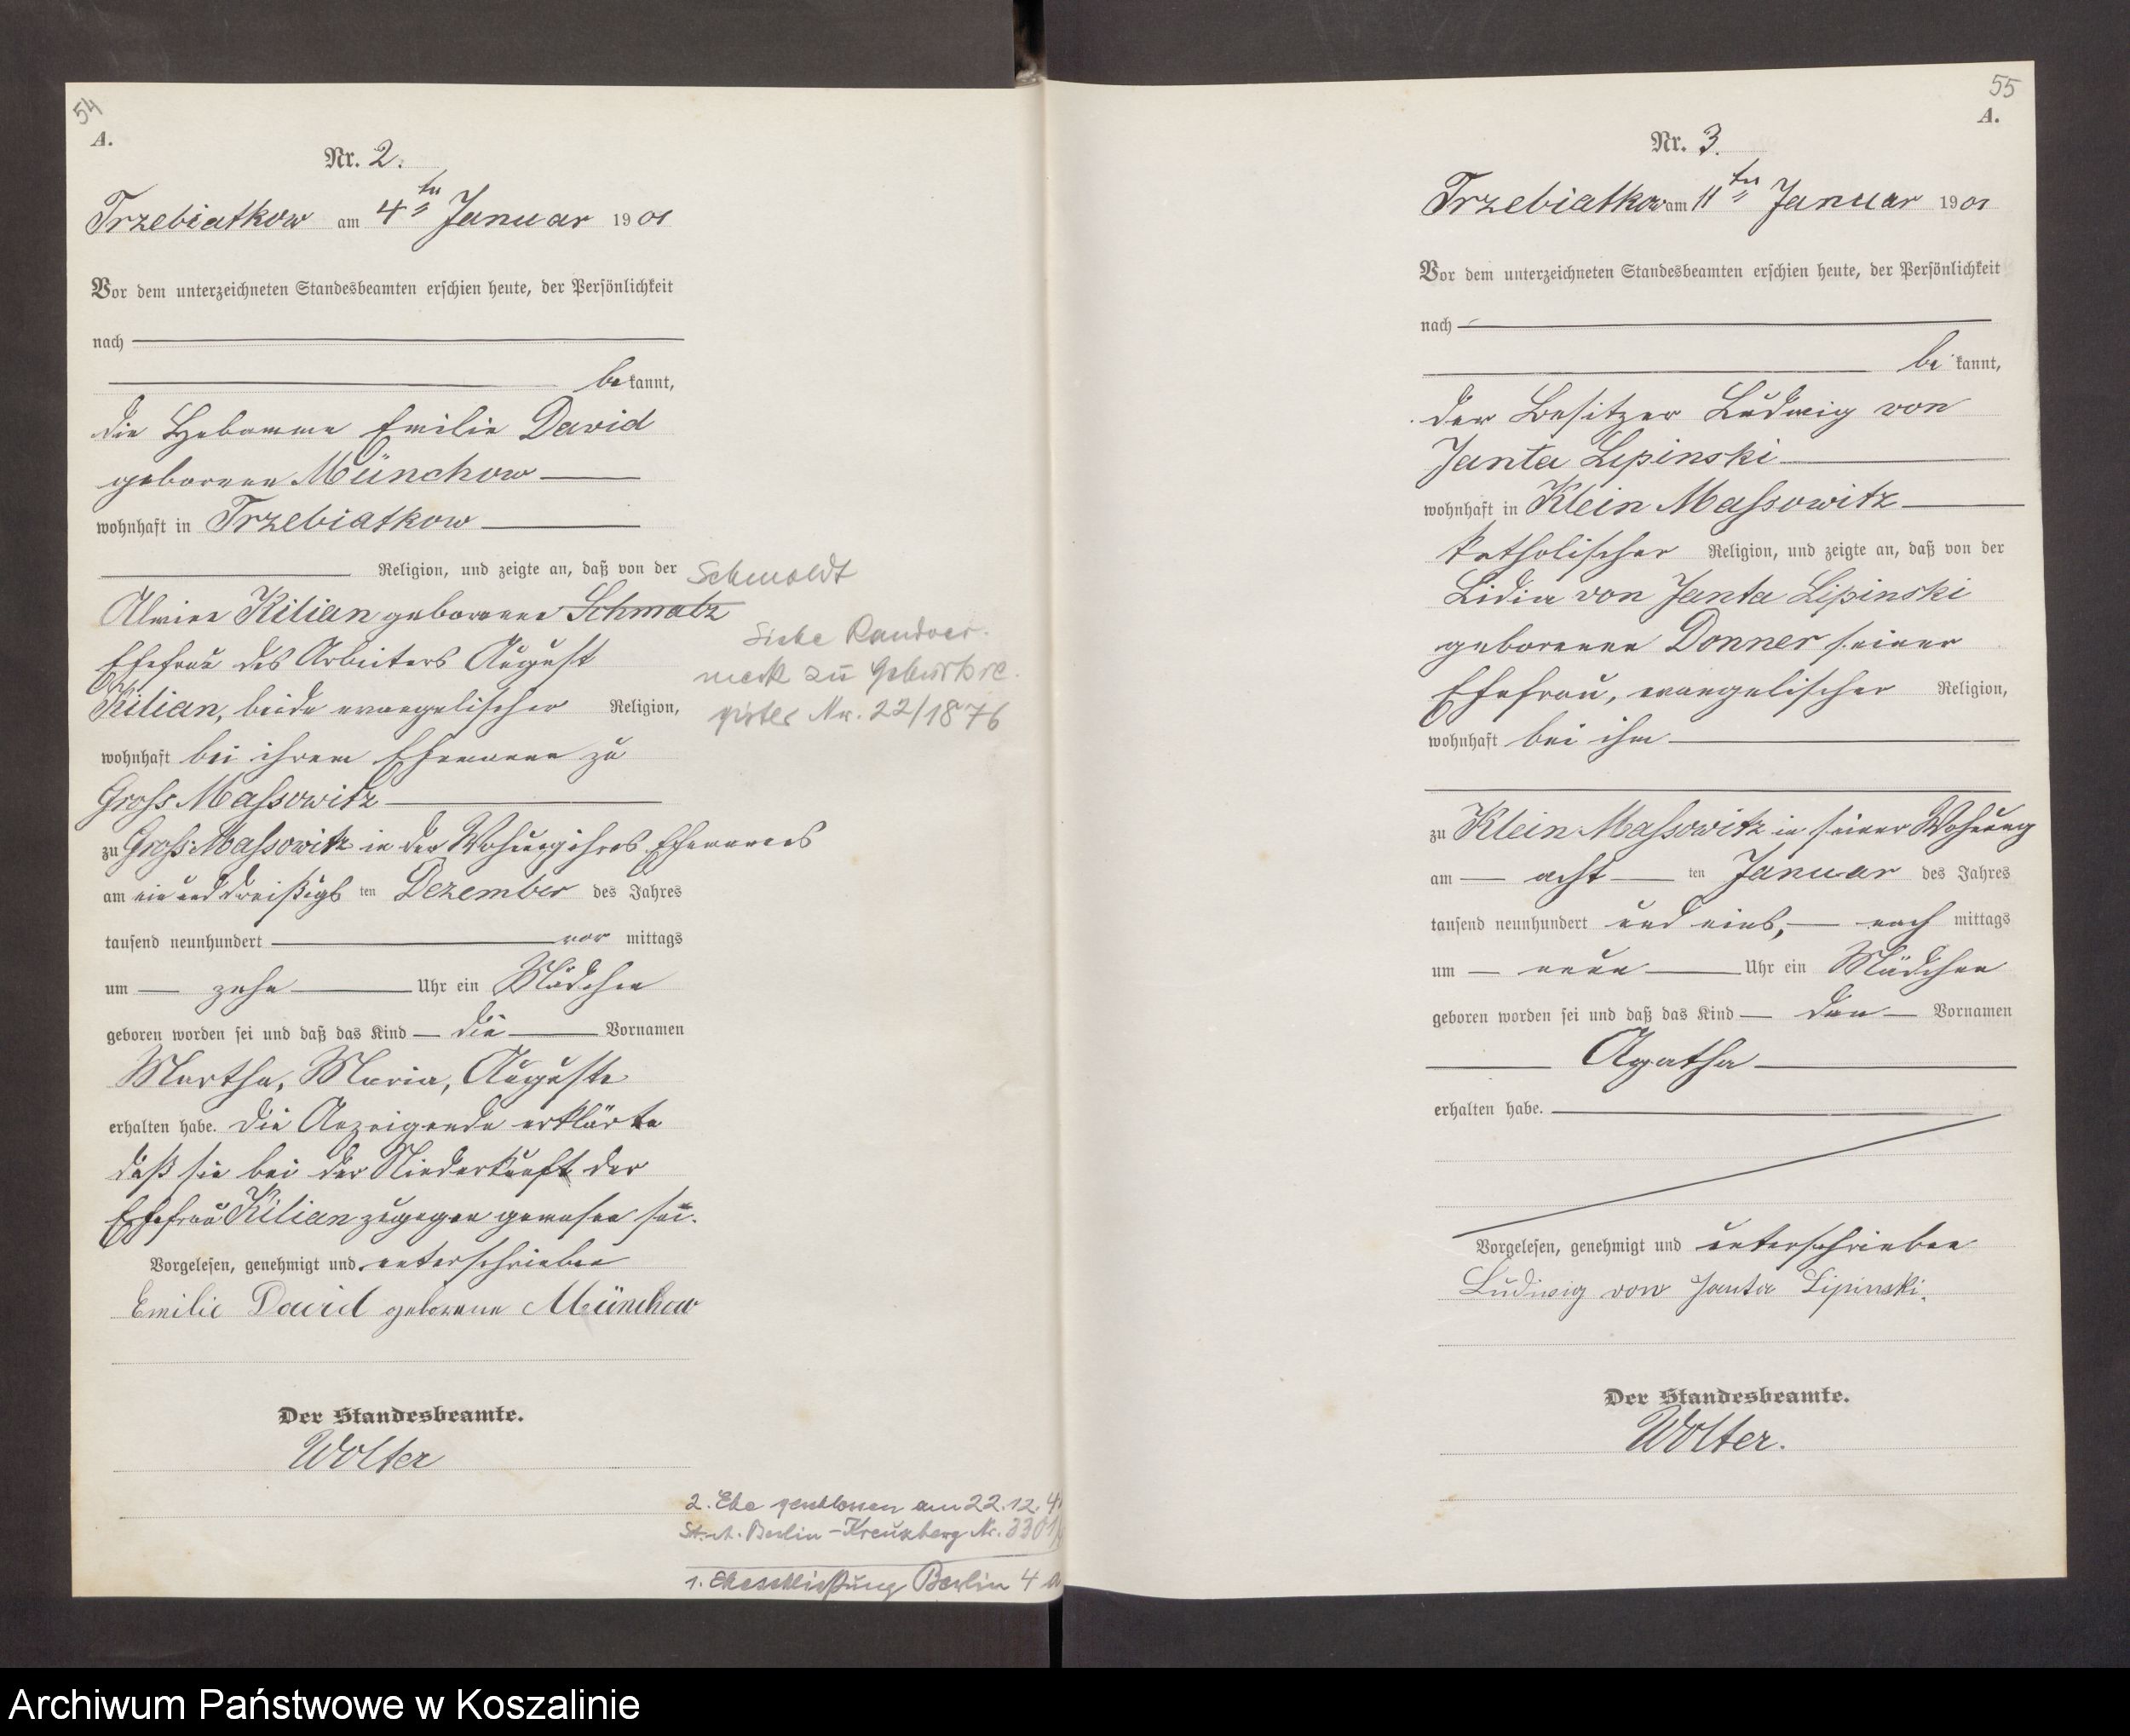 54
A.
Nr. 2.
Trzebiatkow am 4ten Januar 1901
Vor dem unterzeichneten Standesbeamten erschien heute, der Persönlichkeit
nach
bekannt,
die Hebamme Emilie David
geborene Münchow
wohnhaft in Trzebiatkow
Religion, und zeigte an, daß von der
Schmoldt
Alwine Kilian geborenen Schmalz
Siehe Randver-
Ehefrau des Arbeiters August
merk zu Geburtsre-
Kilian, beide evangelischer Religion,
gister Nr. 22/1876
wohnhaft bei ihrem Ehemanne zu
Gross Massowitz
zu Gross-Massowitz in der Wohnung ihres Ehemannes
am ein und dreißigsten Dezember des Jahres
tausend neunhundert vormittags
um zehn Uhr ein Mädchen
geboren worden sei und daß das Kind die Vornamen
Martha, Maria, Auguste
erhalten habe. Die Anzeigende erklärte
daß sie bei der Niederkunft der
Ehefrau Kilian zugegen gewesen sei.
Vorgelesen, genehmigt und unterschrieben
Emilie David geborene Münchow
Der Standesbeamte.
Wolter
2. Ehe geschlossen am 22.12.4
St. A. Berlin-Kreuzberg Nr. 3301/
1. Eheschließung Berlin 4 a
55
A.
Nr. 3.
Trzebiatkow am 11ten Januar 1901
Vor dem unterzeichneten Standesbeamten erschien heute, der Persönlichkeit
nach
bekannt,
der Besitzer Ludwig von
Janta Lipinski
wohnhaft in Klein Massowitz
katholischer Religion, und zeigte an, daß von der
Lidia von Janta Lipinski
geborenen Donner seiner
Ehefrau, evangelischer Religion,
wohnhaft bei ihm
zu Klein-Massowitz in seiner Wohnung
am achtten Januar des Jahres
tausend neunhundert und eins, nachmittags
um neun Uhr ein Mädchen
geboren worden sei und daß das Kind den Vornamen
Agatha
erhalten habe.
Vorgelesen, genehmigt und unterschrieben
Ludwig von Janta Lipinski.
Der Standesbeamte.
Wolter.
Archiwum Państwowe w Koszalinie